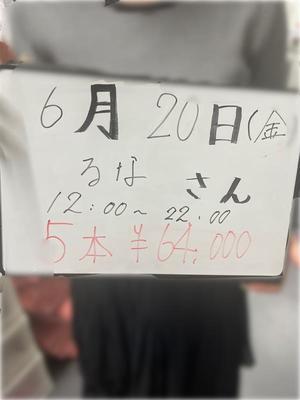 6月 20日(金
るな さん
12:00~ 22:00
5本 ¥64,000